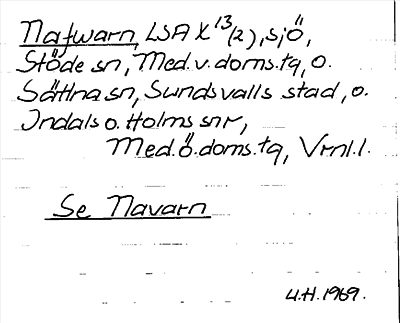 Nafwarn, LSA X 13/(2), sjö,
Stöde sn, Med.v.doms.tg, o.
Sättna sn, Sundsvalls stad, o.
Indals o. Holms snr,
Med.ö.doms.tg, Vrnl.l.
Se Navarn
U.H. 1969.